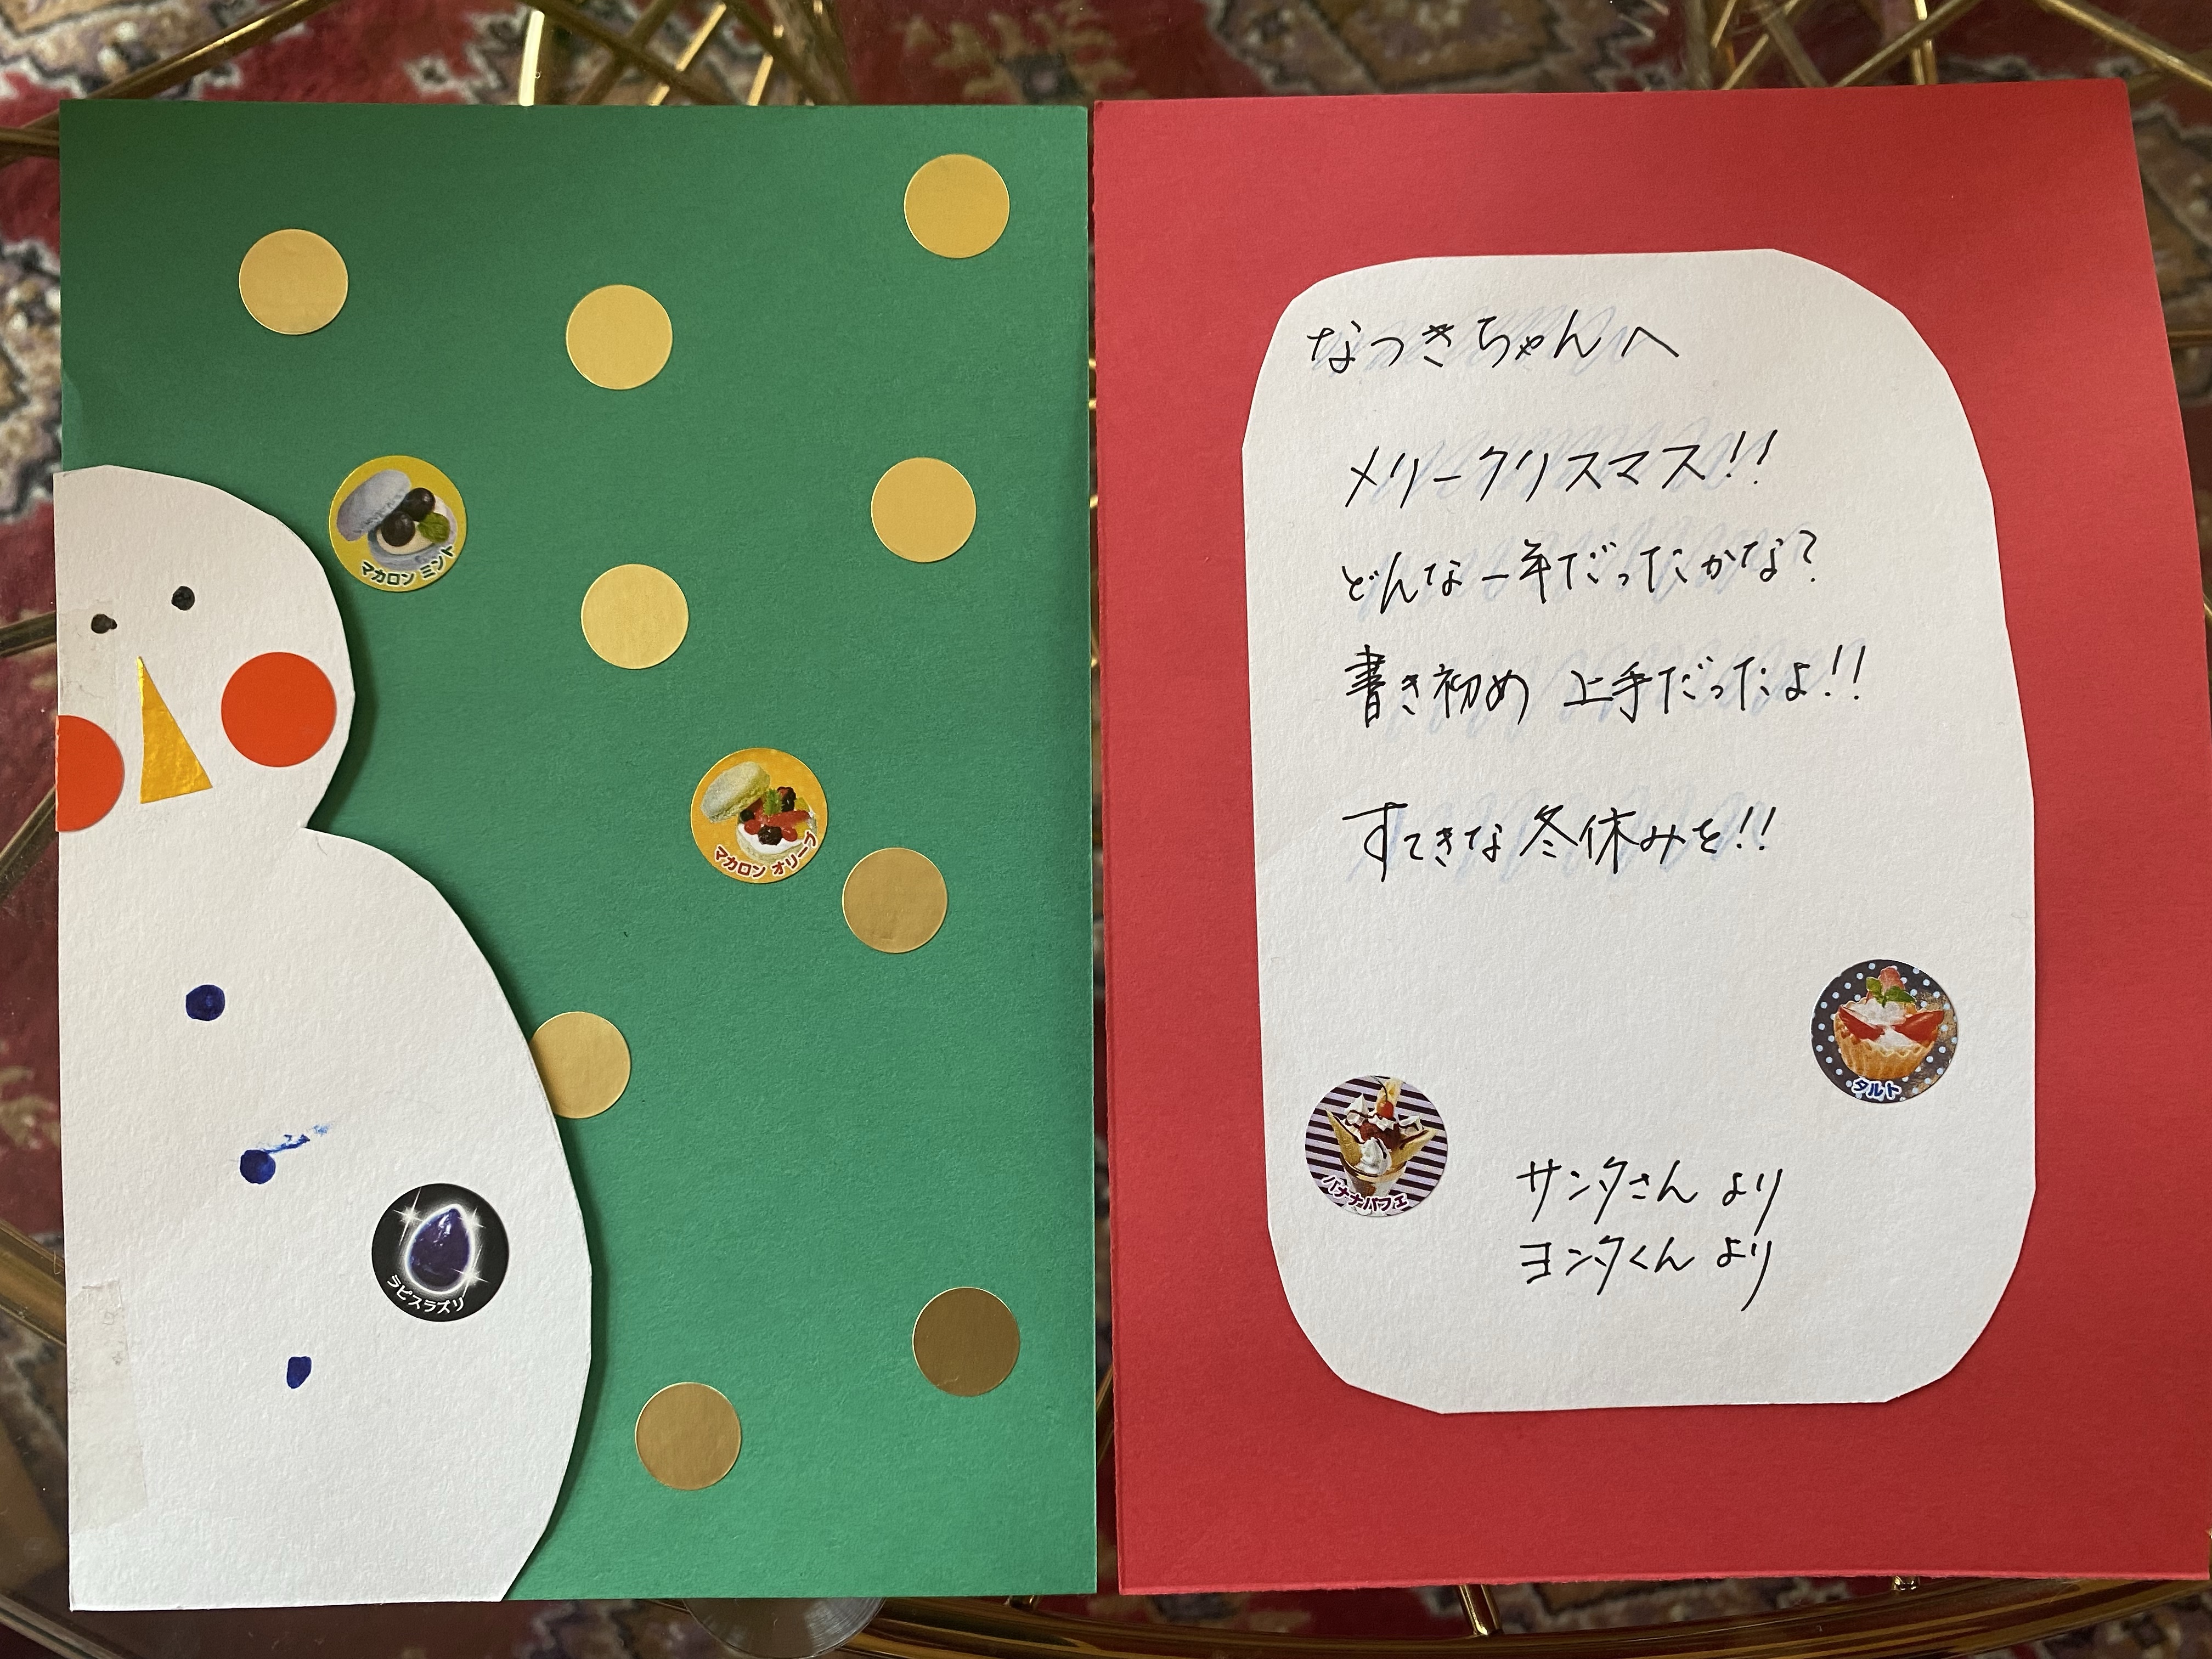 マカロン ミント
マカロン オリーブ
ラピスラズリ
なつきちゃんへ
メリークリスマス!!
どんな一年だったかな?
書き初め 上手だったよ!!
すてきな冬休みを!!
タルト
バナナパフェ
サンタさん より
ヨンタくん より